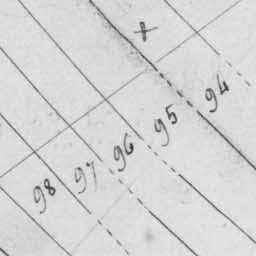 98 97 96 95 94